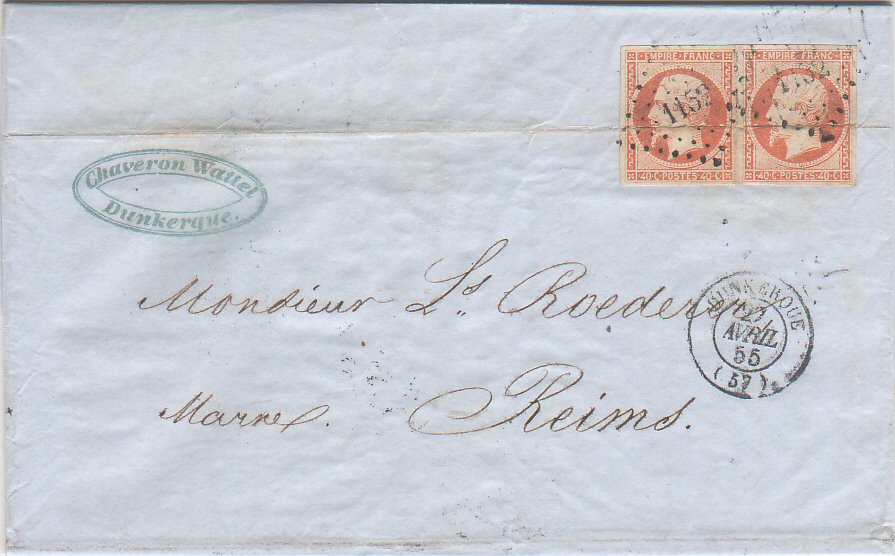 EMPIRE FRANC EMPIRE FRANC
1152
40 C POSTES 40 C 40 C POSTES 40 C
Chaveron Wattel
Dunkerque.
Monsieur Ls Roederer
DUNKERQUE
AVRIL
55
(57)
Marne. Reims.